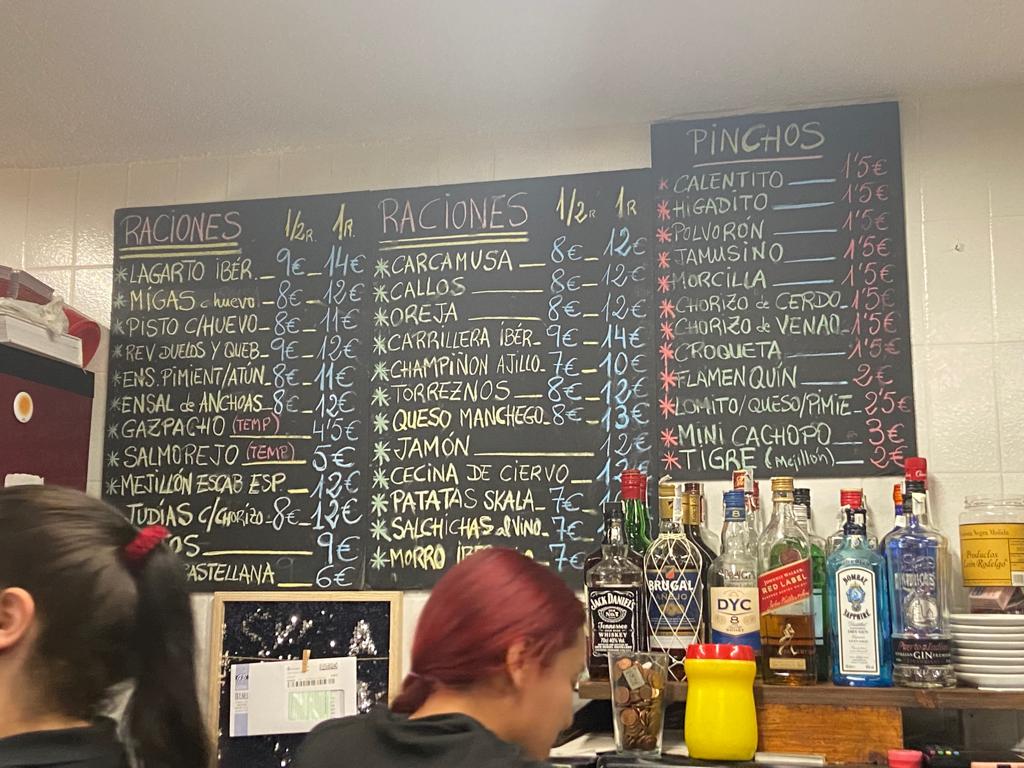 RACIONES 1/2 R. 1 R.
*LAGARTO IBÉR._9€_14€
*MIGAS c huevo_8€_12€
*PISTO C/HUEVO_8€_11€
*REV DUELOS Y QUEB_9€_12€
*ENS. PIMIENT/ATÚN_8€_11€
*ENSAL de ANCHOAS_8€_12€
*GAZPACHO (TEMP) 4'5€
*SALMOREJO (TEMP) 5€
*MEJILLÓN ESCAB ESP_12€
JUDIAS C/CHORIZO_8€_12€
OS 9€
CASTELLANA_6€
RACIONES 1/2 R 1 R
*CARCAMUSA_8€_12€
*CALLOS 8€_12€
*OREJA 8€_12€
*CARRILLERA ÍBÉR_9€_14€
*CHAMPIÑON AJILLO_7€_10€
*TORREZNOS_8€_12€
*QUESO MANCHEGO_8€_13€
*JAMÓN 12€
*CECINA DE CIERVO 12€
*PATATAS SKALA_7€
*SALCHICHAS al VINO_7€
*MORRO 7€
PINCHOS
*CALENTITO 1'5€
*HIGADITO 1'5€
*POLVORÓN 1'5€
*JAMUSINO 1'5€
*MORCILLA 1'5€
*CHORIZO de CERDO_1'5€
*CHORIZO de VENAO_1'5€
*CROQUETA 1'5€
*FLAMENQUÍN 2€
*LOMITO/QUESO/PIMIE_2'5€
*MINI CACHOPO 3€
*TIGRE (Mejillón) 2€
JACK DANIEL'S
Tennessee
WHISKEY
BRUGAL
AÑEJO
DYC
8
JOHNNIE WALKER
RED LABEL
BOMBAY
SAPPHIRE
GIN
Productos